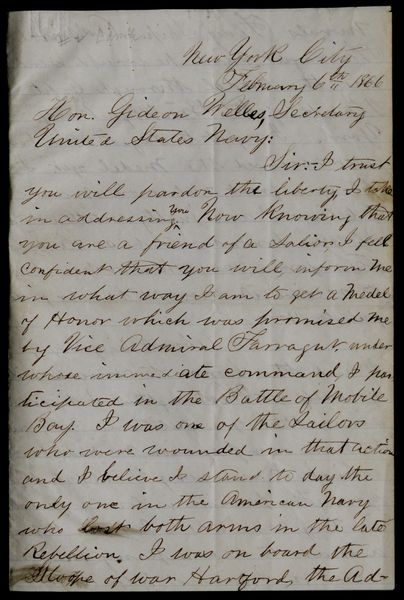 New York City
February 6th 1866
Hon. Gideon Welles, Secretary
United States Navy:
Sir:- I trust
you will pardon the liberty I take
in addressing you Now Knowing that
you are a friend of a Salior I feel
confident that you will inform me
in what way I am to get a Medel
of Honor which was promised me
by Vice Admiral Farragut, under
whose immediate command, I par
ticipated in the Battle of Mobile
Bay. I was one of the Sailors
who were wounded in that action
and I believe I stand to day the
only one in the American Navy
who lost both arms in the late
Rebellion. I was on board the
Sloope of war Hartford, the Ad-